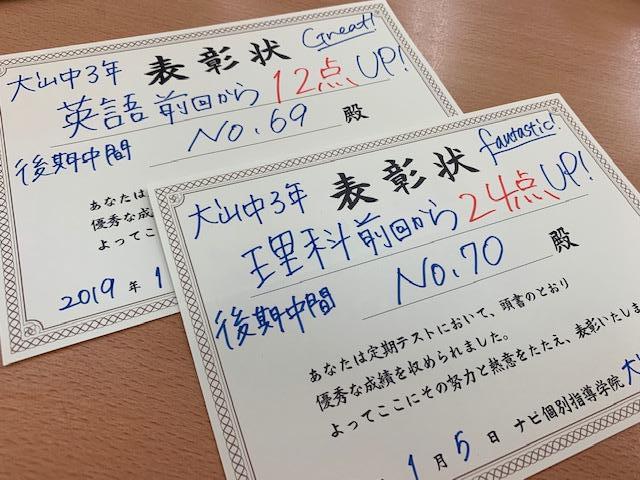 大山中3年 表彰状 Great!
英語 前回から 12点UP!
後期中間 No.69 殿
あなたは
優秀な成
よってこ
2019年 1
大山中3年 表彰状 fantastic!
理科 前回から 24点UP!
後期中間 No.70 殿
あなたは定期テストにおいて、頭書のとおり
優秀な成績を収められました。
よってここにその努力と熱意をたたえ、表彰いたしま
1月5日 ナビ個別指導学院 大